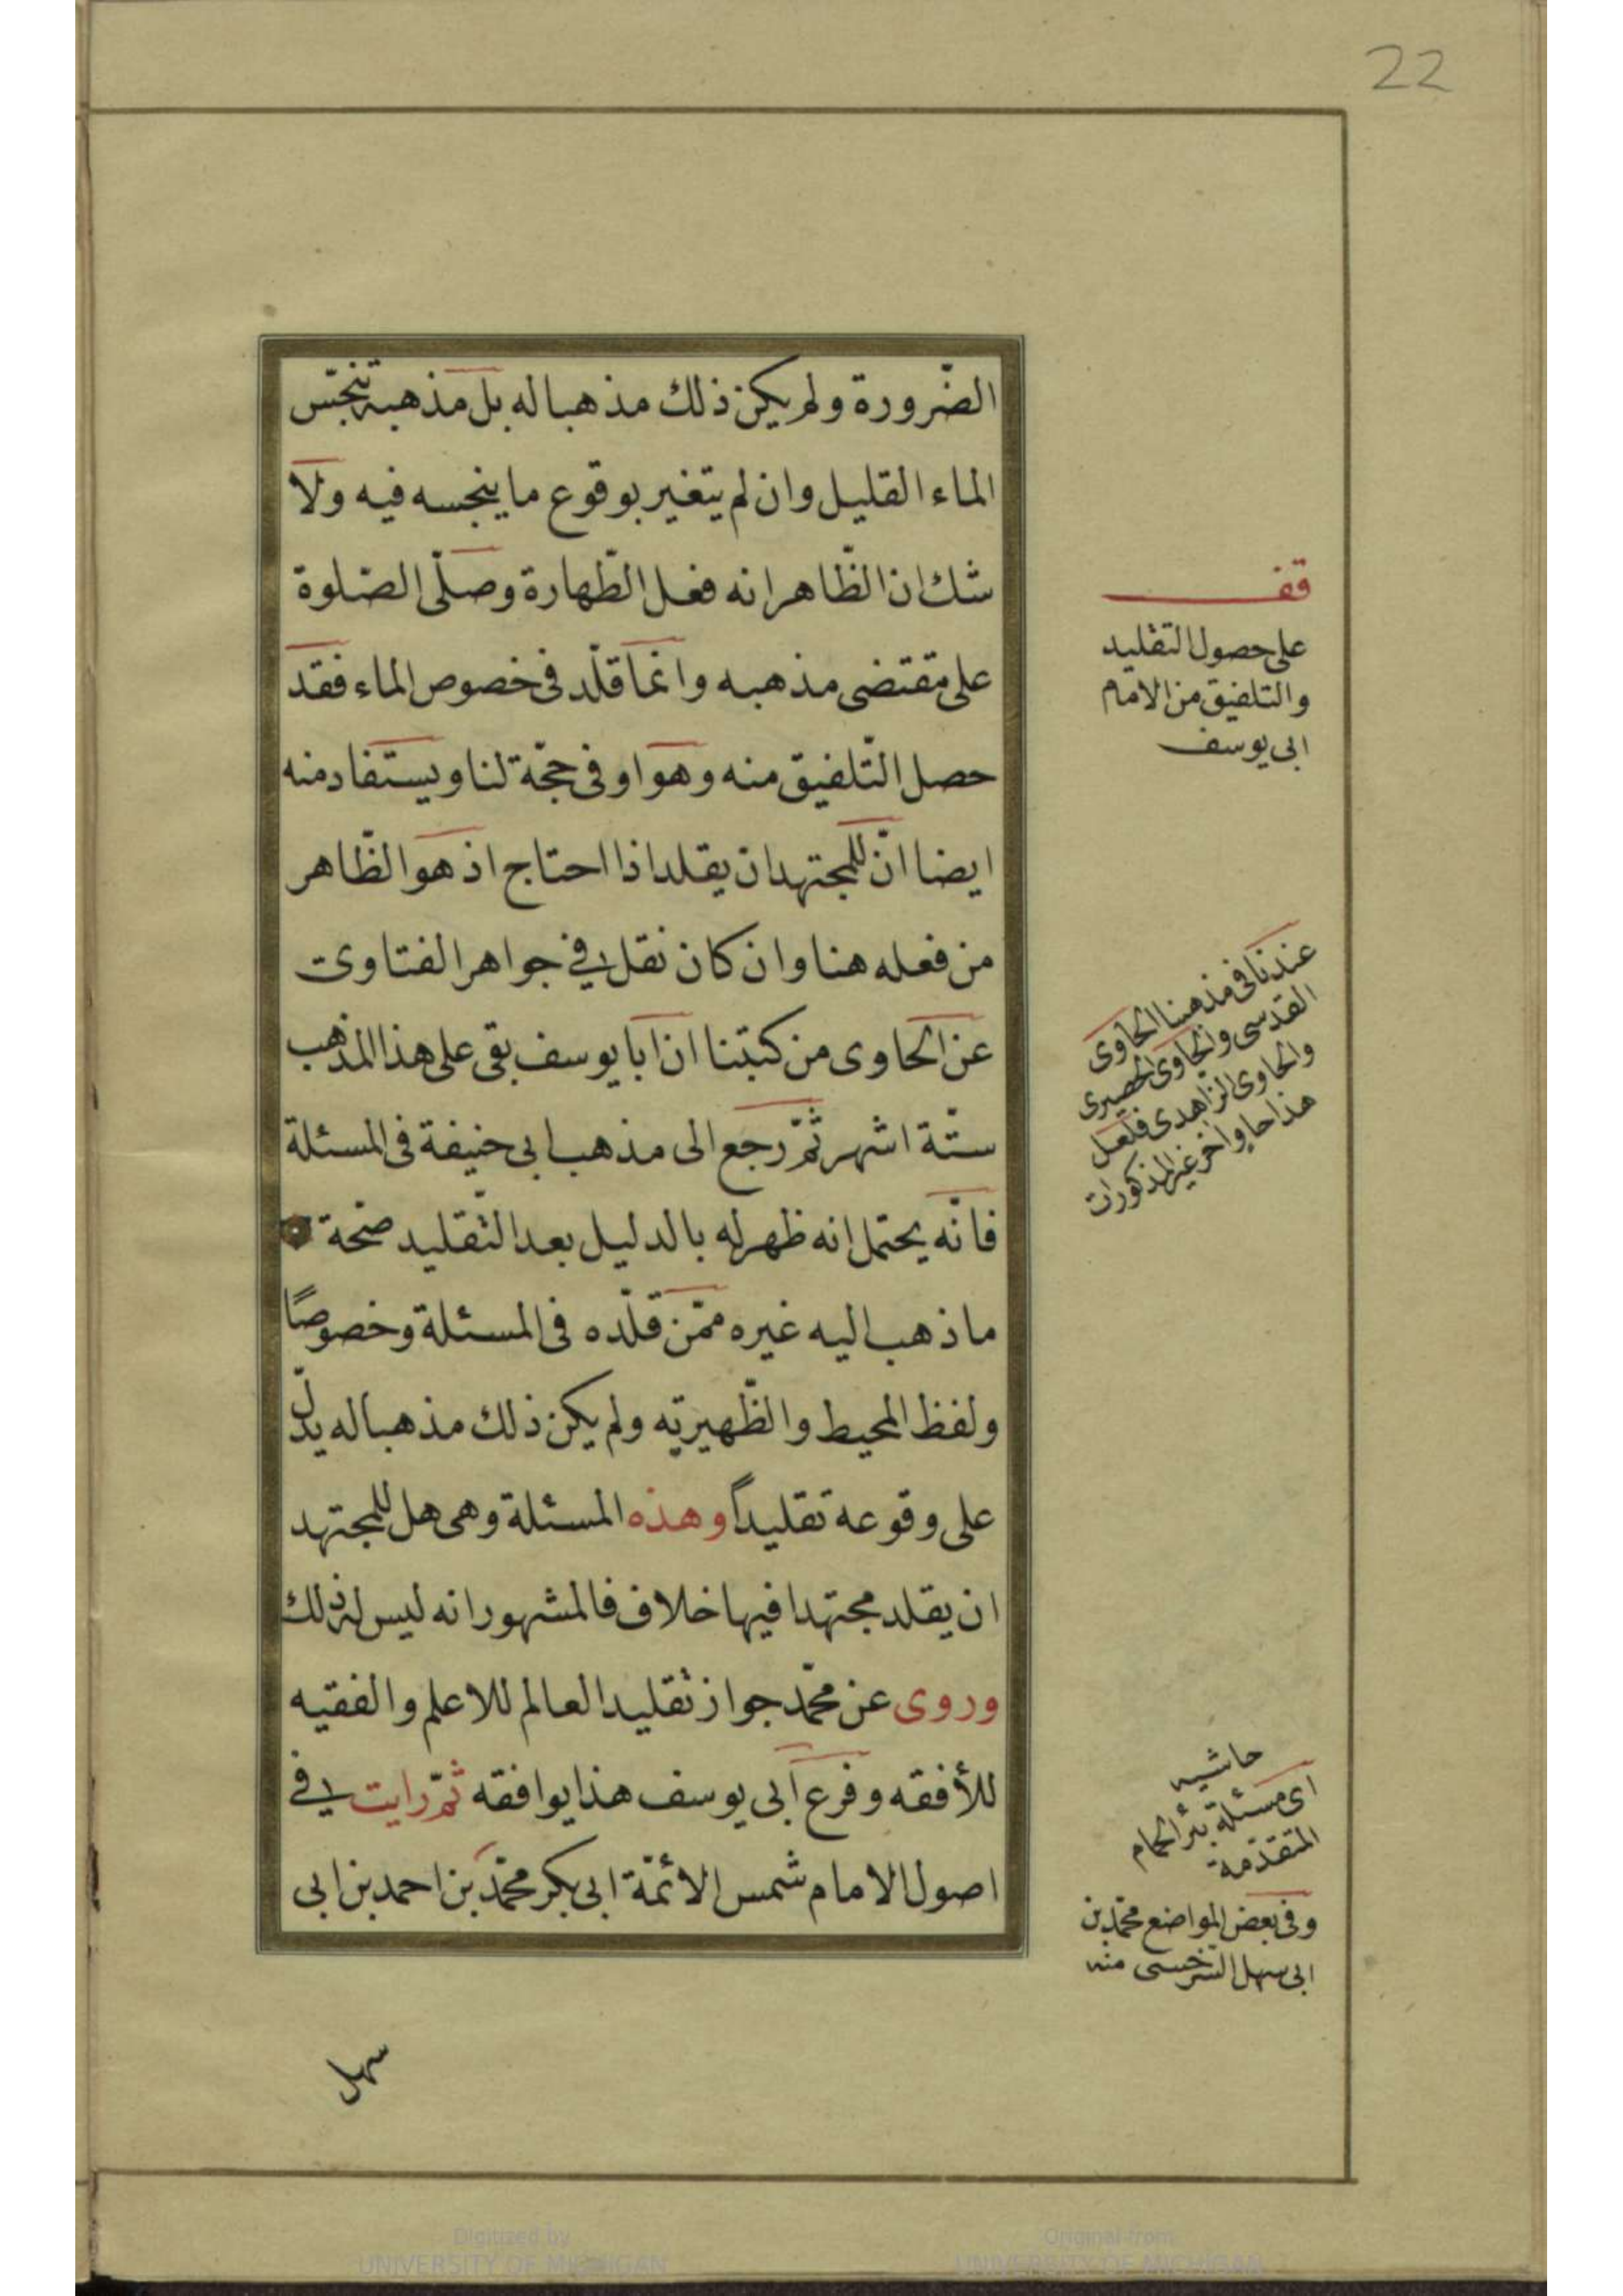 22
الضّرورة ولم يكن ذلك مذهبا له بل مذهبه تنجّس
الماء القليل وان لم يتغير بوقوع ما ينجسه فيه ولا
شك ان الظّاهر انه فعل الطّهارة وصلّى الصّلوة
على مقتضى مذهبه وانما قلّد فى خصوص الماء فقد
حصل التّلفيق منه وهو اوفى حجّة لنا ويستفاد منه
ايضا انّ للمجتهد ان يقلد اذا احتاج اذ هو الظّاهر
من فعله هنا وان كان نقل فى جواهر الفتاوى
عن الحاوى من كتبنا ان ابا يوسف بقى على هذا المذهب
ستّة اشهر ثمّ رجع الى مذهب ابى حنيفة فى المسئلة
فانّه يحتمل انه ظهر له بالدليل بعد التّقليد صحّة
ما ذهب اليه غيره ممّن قلّده فى المسئلة وخصوصًا
ولفظ المحيط والظّهيريّه ولم يكن ذلك مذهبا له يدلّ
على وقوعه تقليداً وهذه المسئلة وهى هل للمجتهد
ان يقلد مجتهدا فيها خلاف فالمشهور انه ليس له ذلك
وروى عن محمّد جواز تقليد العالم للاعلم والفقيه
للأفقه وفرع ابى يوسف هذا يوافقه ثمّ رايت فى
اصول الامام شمس الائمّة ابى بكر محمّد بن احمد بن ابى
سهل
قف
على حصول التقليد
والتلفيق من الامام
ابى يوسف
عندنا فى مذهبنا الحاوى
القدسى والحاوى الحصيرى
والحاوى الزاهدى فلعل
هذا حاو اخر غير المذكورات
حاشيه
اى مسئلة بئر الحمام
المتقدّمة
وفى بعض المواضع محمّد بن
ابى سهل السّرخسى منه
Digitized by
UNIVERSITY OF MICHIGAN
Original from
UNIVERSITY OF MICHIGAN